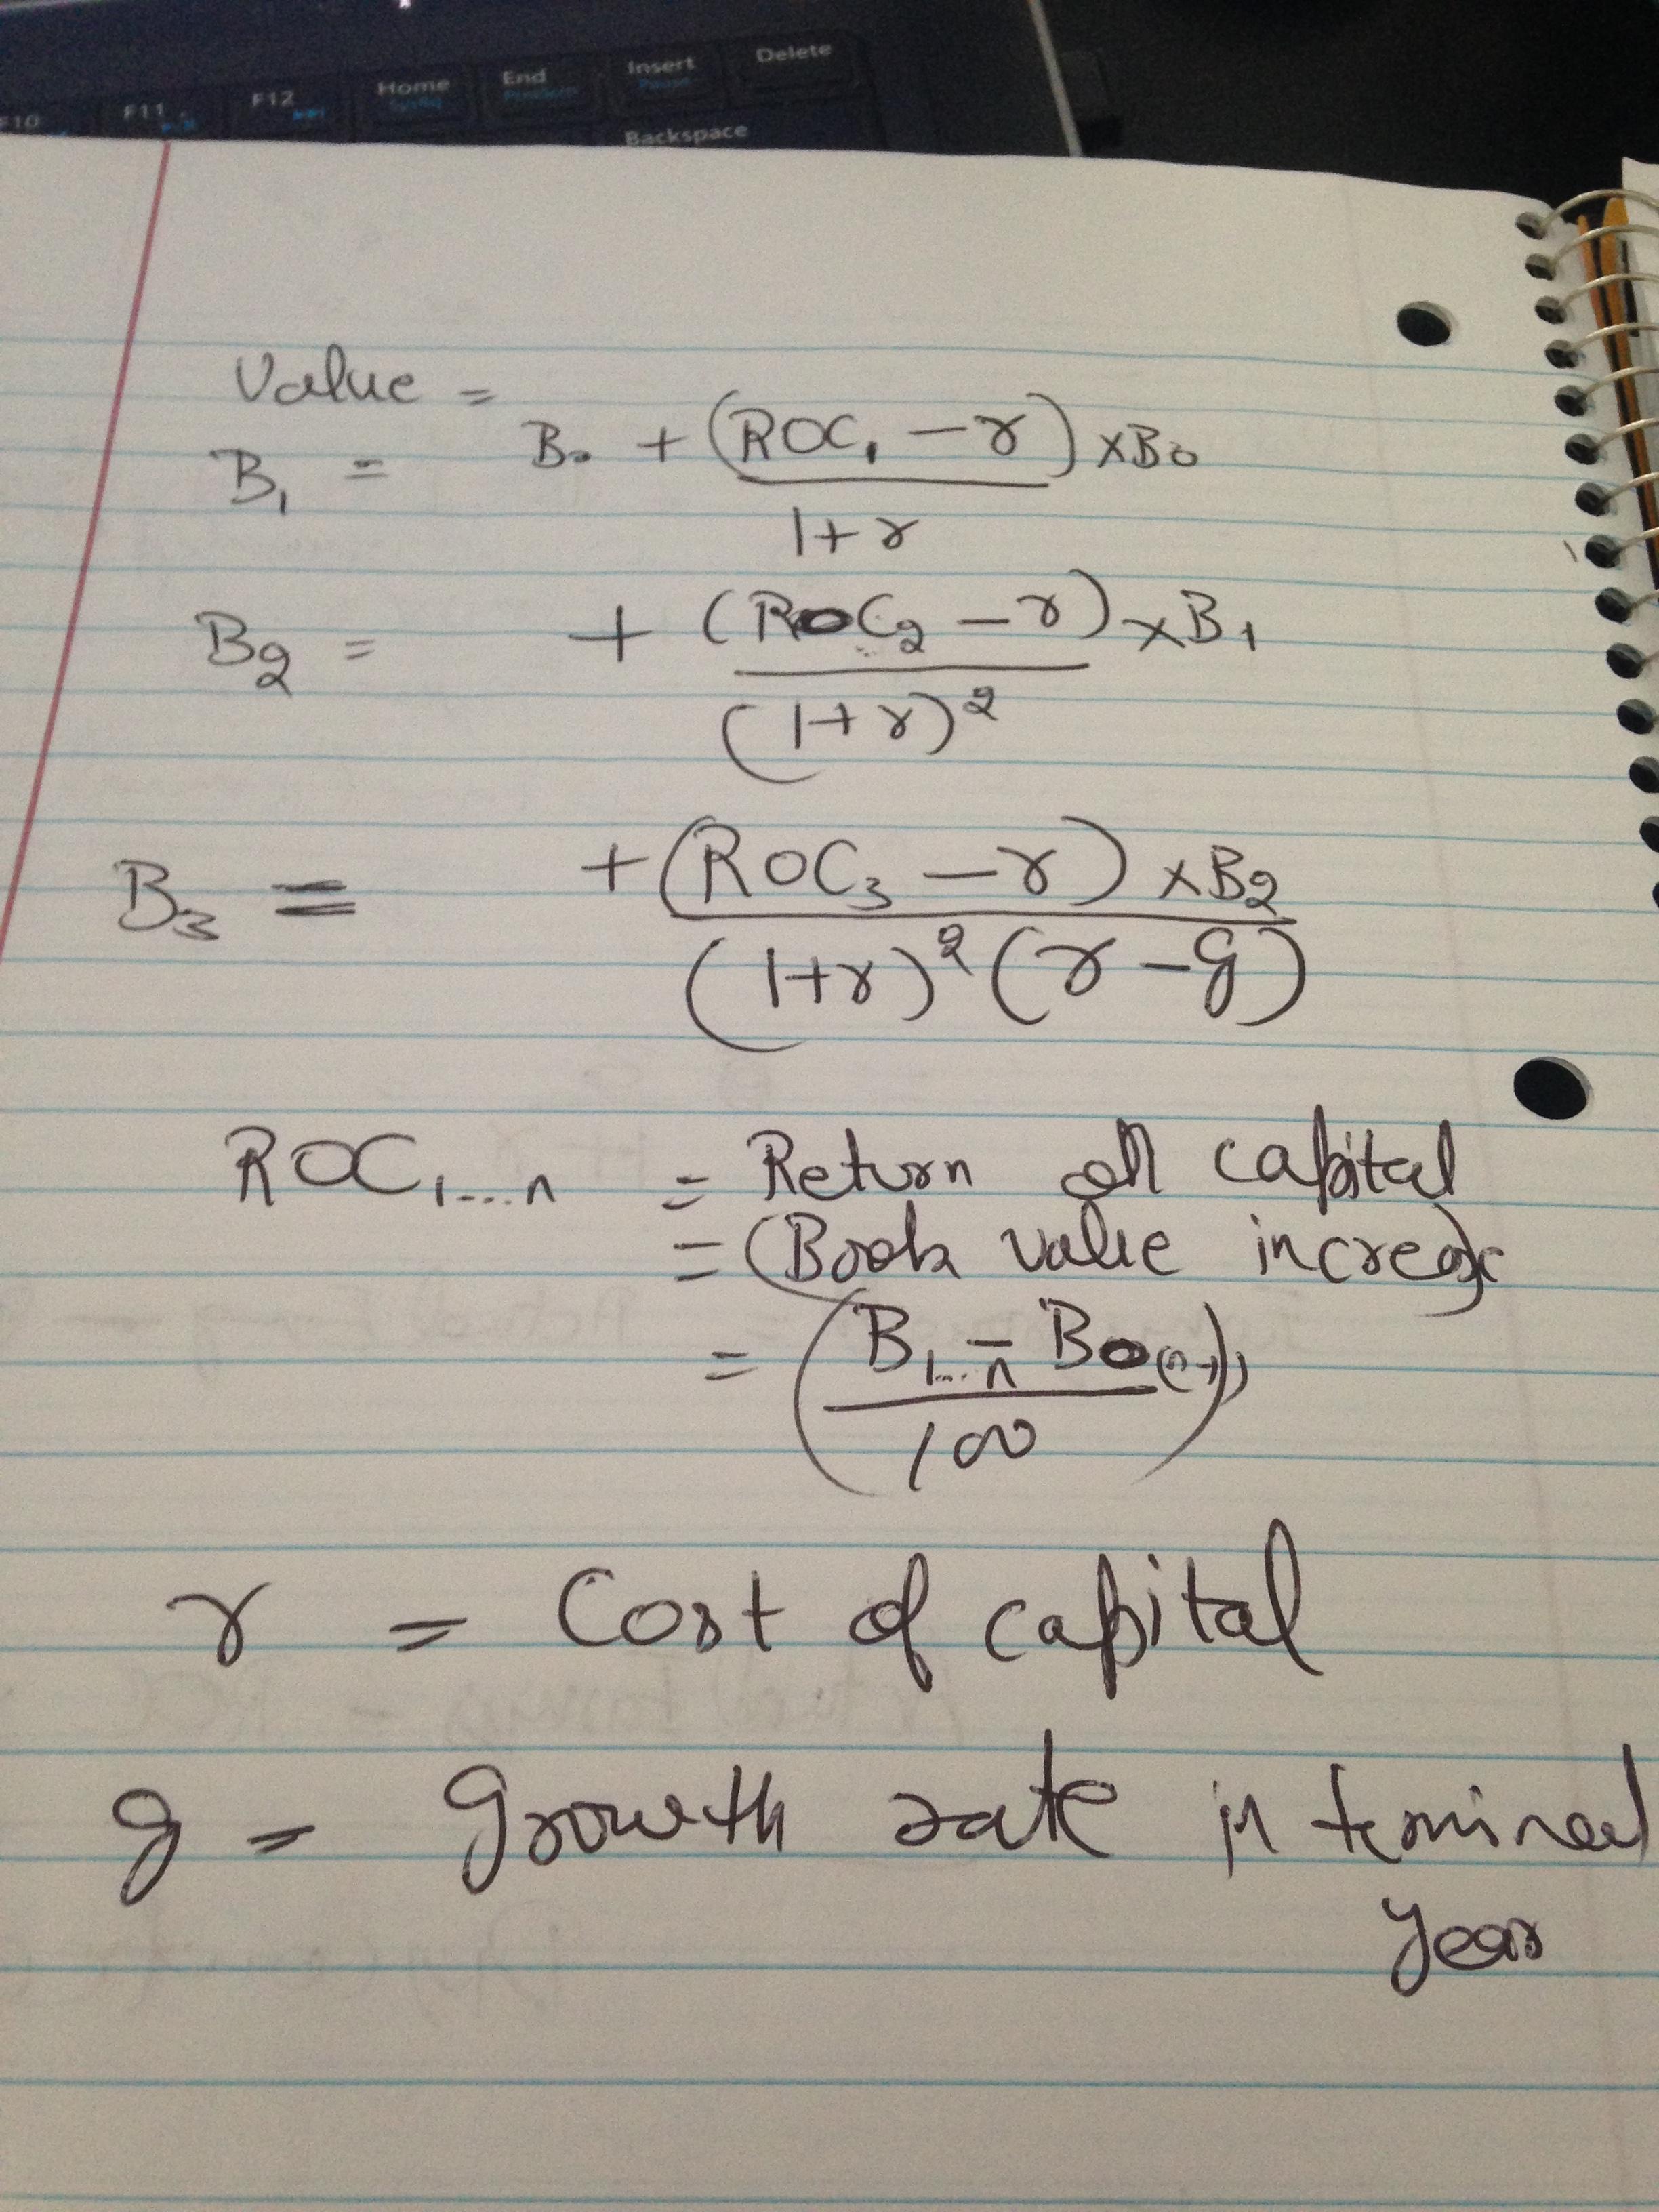 F10 F11 F12 Home End Insert Delete
SysRq Pause
Backspace
Value =
B₁ = B₀ + (ROC₁ - r) × B₀
1 + r
B₂ = + (ROC₂ - r) × B₁
(1 + r)²
B₃ = + (ROC₃ - r) × B₂
(1 + r)² (r - g)
ROC₁...ₙ = Return on capital
= (Book value increase)
= (B₁...ₙ - B₀₍ₙ₋₁₎)
100
r = Cost of capital
g = Growth rate in terminal
year